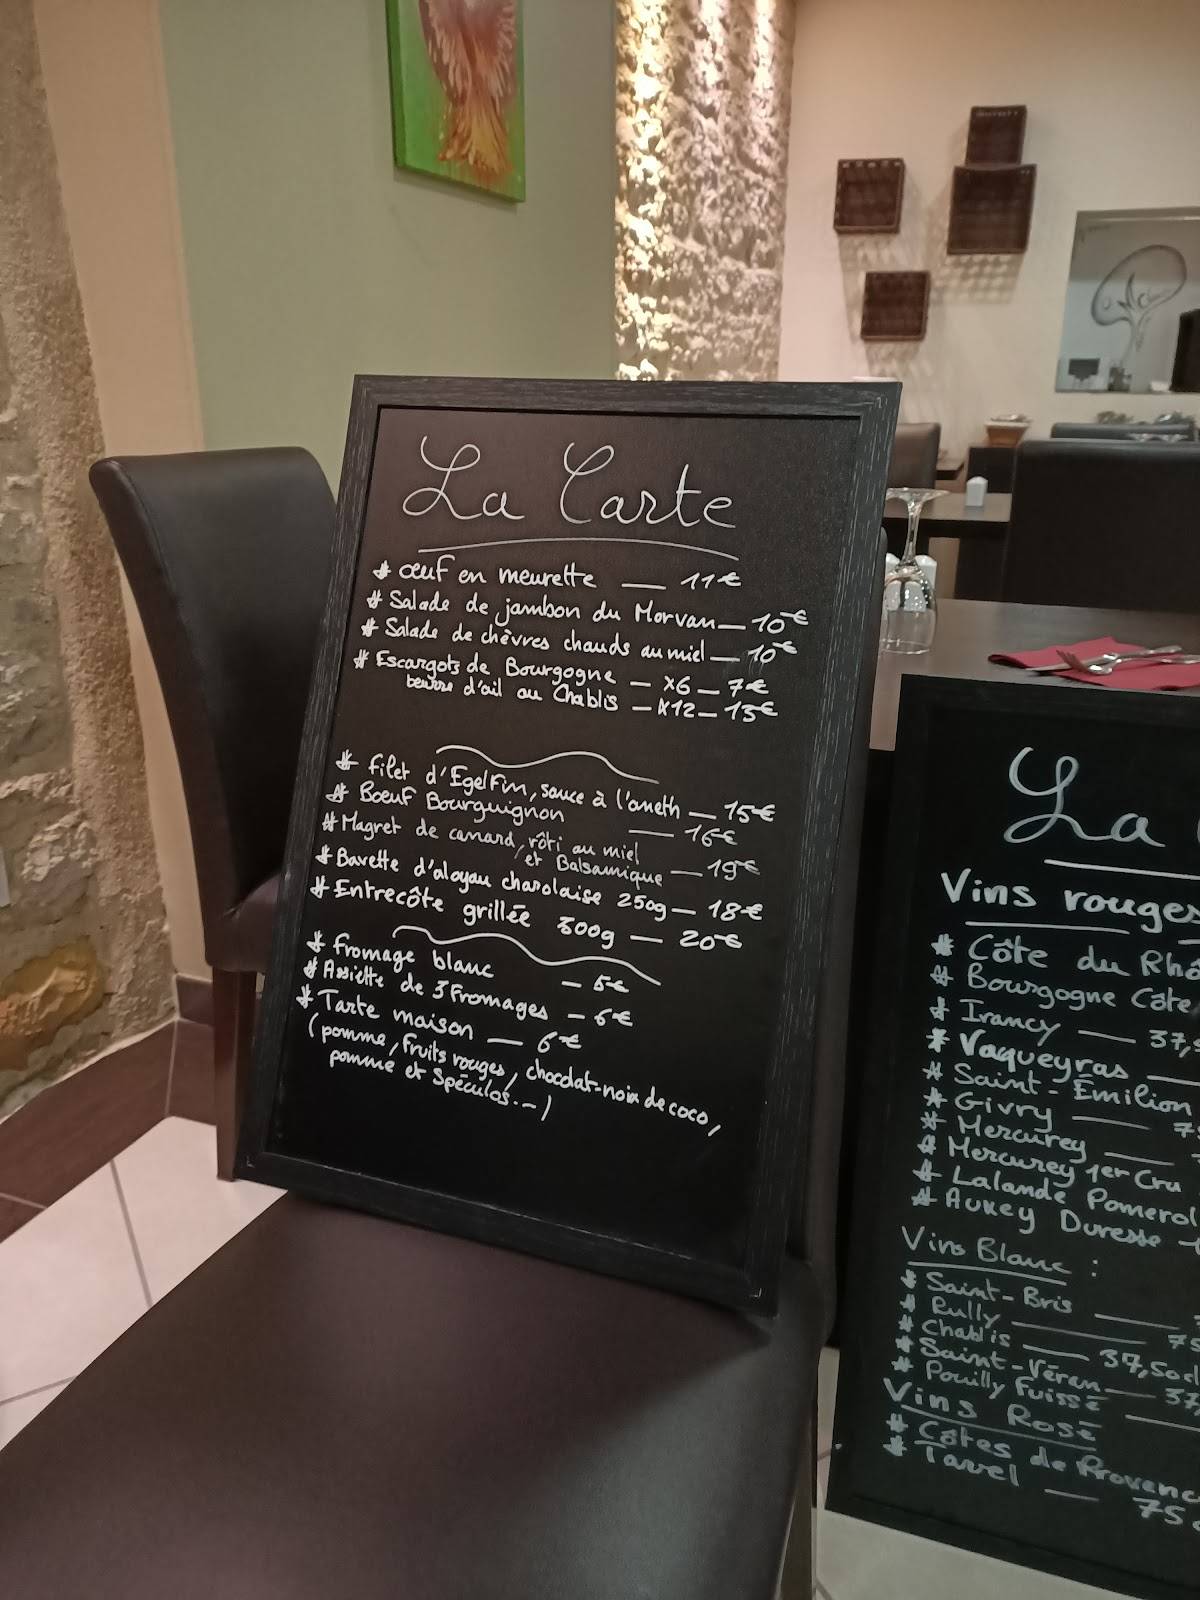 La Carte
# œuf en meurette — 11€
# Salade de jambon du Morvan — 10€
# Salade de chèvres chauds au miel — 10€
# Escargots de Bourgogne — x6 — 7€
beurre d'ail au Chablis — x12 — 13€
# filet d'Egelfin, sauce à l'aneth — 15€
# Bœuf Bourguignon — 16€
# Magret de canard, rôti au miel
et Balsamique — 19€
# Bavette d'aloyau charolaise 250g — 18€
# Entrecôte grillée 300g — 20€
# Fromage blanc — 5€
# Assiette de 3 Fromages — 6€
# Tarte maison — 6€
(pomme, Fruits rouges, chocolat-noix de coco,
pomme et Spéculos...)
La
Vins rouges
# Côte du Rhô
# Bourgogne Côte
# Irancy — 37,5
# Vaqueyras —
# Saint-Émilion
# Givry — 75
# Mercurey —
# Mercurey 1er Cru
# Lalande Pomerol
# Auxey Duresse
Vins Blanc :
# Saint-Bris —
# Rully — 75
# Chablis — 37,5ocl
# Saint-Véran — 37,
# Pouilly Fuissé —
Vins Rosé
# Côtes de Provenc
# Tavel — 75 c